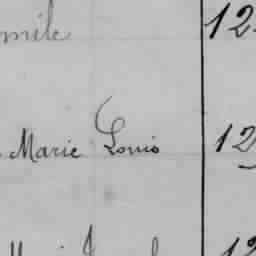 mile 12
Marie Louis 12
12